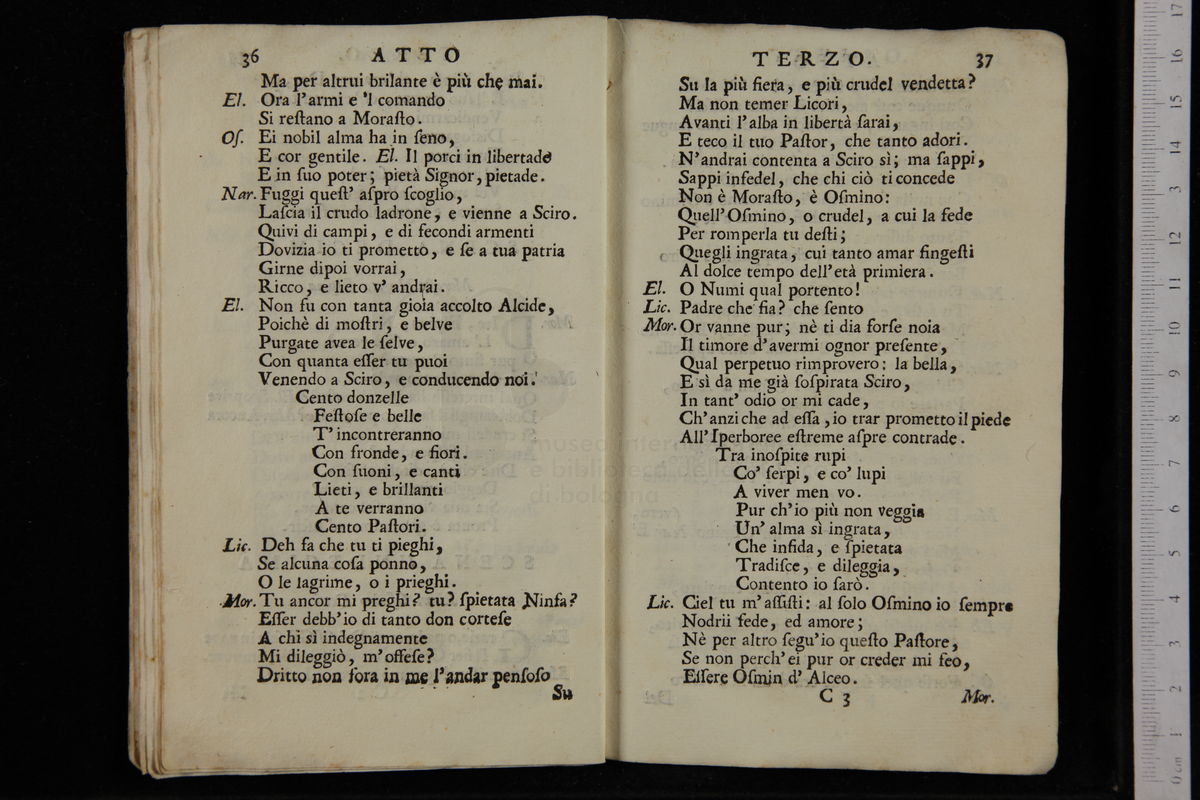 36 ATTO
Ma per altrui brilante è più che mai.
El. Ora l'armi e 'l comando
Si reſtano a Moraſto.
Oſ. Ei nobil alma ha in ſeno,
E cor gentile. El. Il porci in libertade
E in ſuo poter; pietà Signor, pietade.
Nar. Fuggi queſt' aſpro ſcoglio,
Laſcia il crudo ladrone, e vienne a Sciro.
Quivi di campi, e di fecondi armenti
Dovizia io ti prometto, e ſe a tua patria
Girne dipoi vorrai,
Ricco, e lieto v' andrai.
El. Non fu con tanta gioia accolto Alcide,
Poichè di moſtri, e belve
Purgate avea le ſelve,
Con quanta eſſer tu puoi
Venendo a Sciro, e conducendo noi.
Cento donzelle
Feſtoſe e belle
T' incontreranno
Con fronde, e fiori.
Con ſuoni, e canti
Lieti, e brillanti
A te verranno
Cento Paſtori.
Lic. Deh fa che tu ti pieghi,
Se alcuna coſa ponno,
O le lagrime, o i prieghi.
Mor. Tu ancor mi preghi? tu? ſpietata Ninfa?
Eſſer debb'io di tanto don corteſe
A chi sì indegnamente
Mi dileggiò, m'offeſe?
Dritto non fora in me l'andar penſoſo
Su
TERZO. 37
Su la più fiera, e più crudel vendetta?
Ma non temer Licori,
Avanti l'alba in libertà ſarai,
E teco il tuo Paſtor, che tanto adori.
N'andrai contenta a Sciro sì; ma ſappi,
Sappi infedel, che chi ciò ti concede
Non è Moraſto, è Oſmino:
Quell'Oſmino, o crudel, a cui la fede
Per romperla tu deſti;
Quegli ingrata, cui tanto amar fingeſti
Al dolce tempo dell'età primiera.
El. O Numi qual portento!
Lic. Padre che fia? che ſento
Mor. Or vanne pur; nè ti dia forſe noia
Il timore d'avermi ognor preſente,
Qual perpetuo rimprovero: la bella,
E sì da me già ſoſpirata Sciro,
In tant' odio or mi cade,
Ch'anzi che ad eſſa, io trar prometto il piede
All'Iperboree eſtreme aſpre contrade.
Tra inoſpite rupi
Co' ſerpi, e co' lupi
A viver men vo.
Pur ch'io più non veggia
Un' alma sì ingrata,
Che infida, e ſpietata
Tradiſce, e dileggia,
Contento io ſarò.
Lic. Ciel tu m'aſſiſti: al ſolo Oſmino io ſempre
Nodrii fede, ed amore;
Nè per altro ſegu'io queſto Paſtore,
Se non perch'ei pur or creder mi feo,
Eſſere Oſmin d' Alceo.
C 3 Mor.